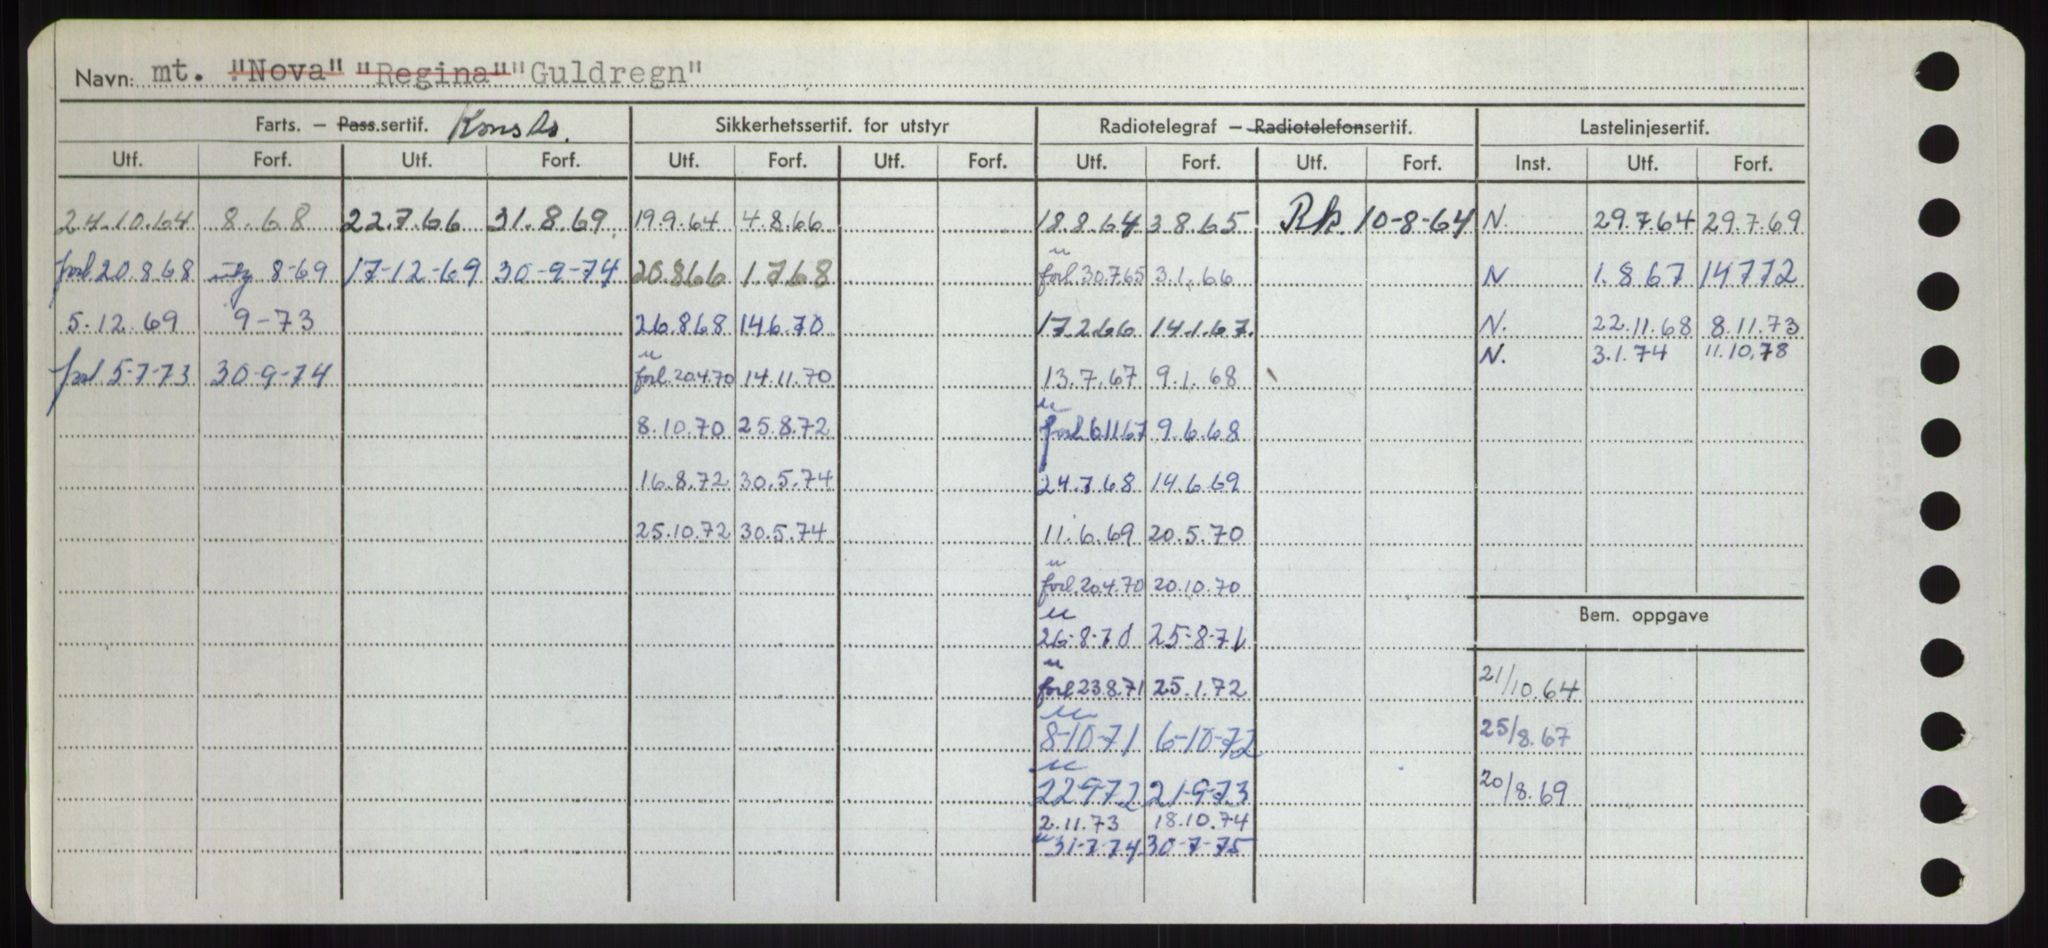 Navn: mt. "Nova" "Regina" "Guldregn"
Farts. — Pass.sertif. Sikkerhetssertif. for utstyr Radiotelegraf — Radiotelefonsertif. Lastelinjesertif.
Utf. Forf. Utf. Forf. Utf. Forf. Utf. Forf. Utf. Forf. Utf. Forf. Inst. Utf. Forf.
24.10.64 8.68 22.7.66 31.8.69. 19.9.64 4.8.66 18.8.64 3.8.65 Rk. 10-8-64 N. 29.7.64 29.7.69
"
forl 20.8.68 8-69 17-12-69 30-9-74 20.8.66 1.7.68 forl 30.7.65 3.1.66 N 1.8.67 14.7.72
5.12.69 9-73 26.8.68 14.6.70 17.2.66 14.1.67. N. 22.11.68 8.11.73
" N. 3.1.74 11.10.78
forl 5-7-73 30-9-74 forl. 20.4.70 14.11.70 13.7.67 9.1.68
"
8.10.70 25.8.72 forl 6.11.67 9.6.68
16.8.72 30.5.74 24.7.68 14.6.69
25.10.72 30.5.74 11.6.69 20.5.70
"
forl. 20.4.70 20.10.70
" Bem. oppgave
26-8-70 25-8-71
"
forl 23.8.71 25.1.72 21/10.64
"
8-10-71 6-10-72 25/8.67
"
22.9.72 21-9-73 20/8.69
2.11.73 18.10.74
" 31-7-74 30-7-75